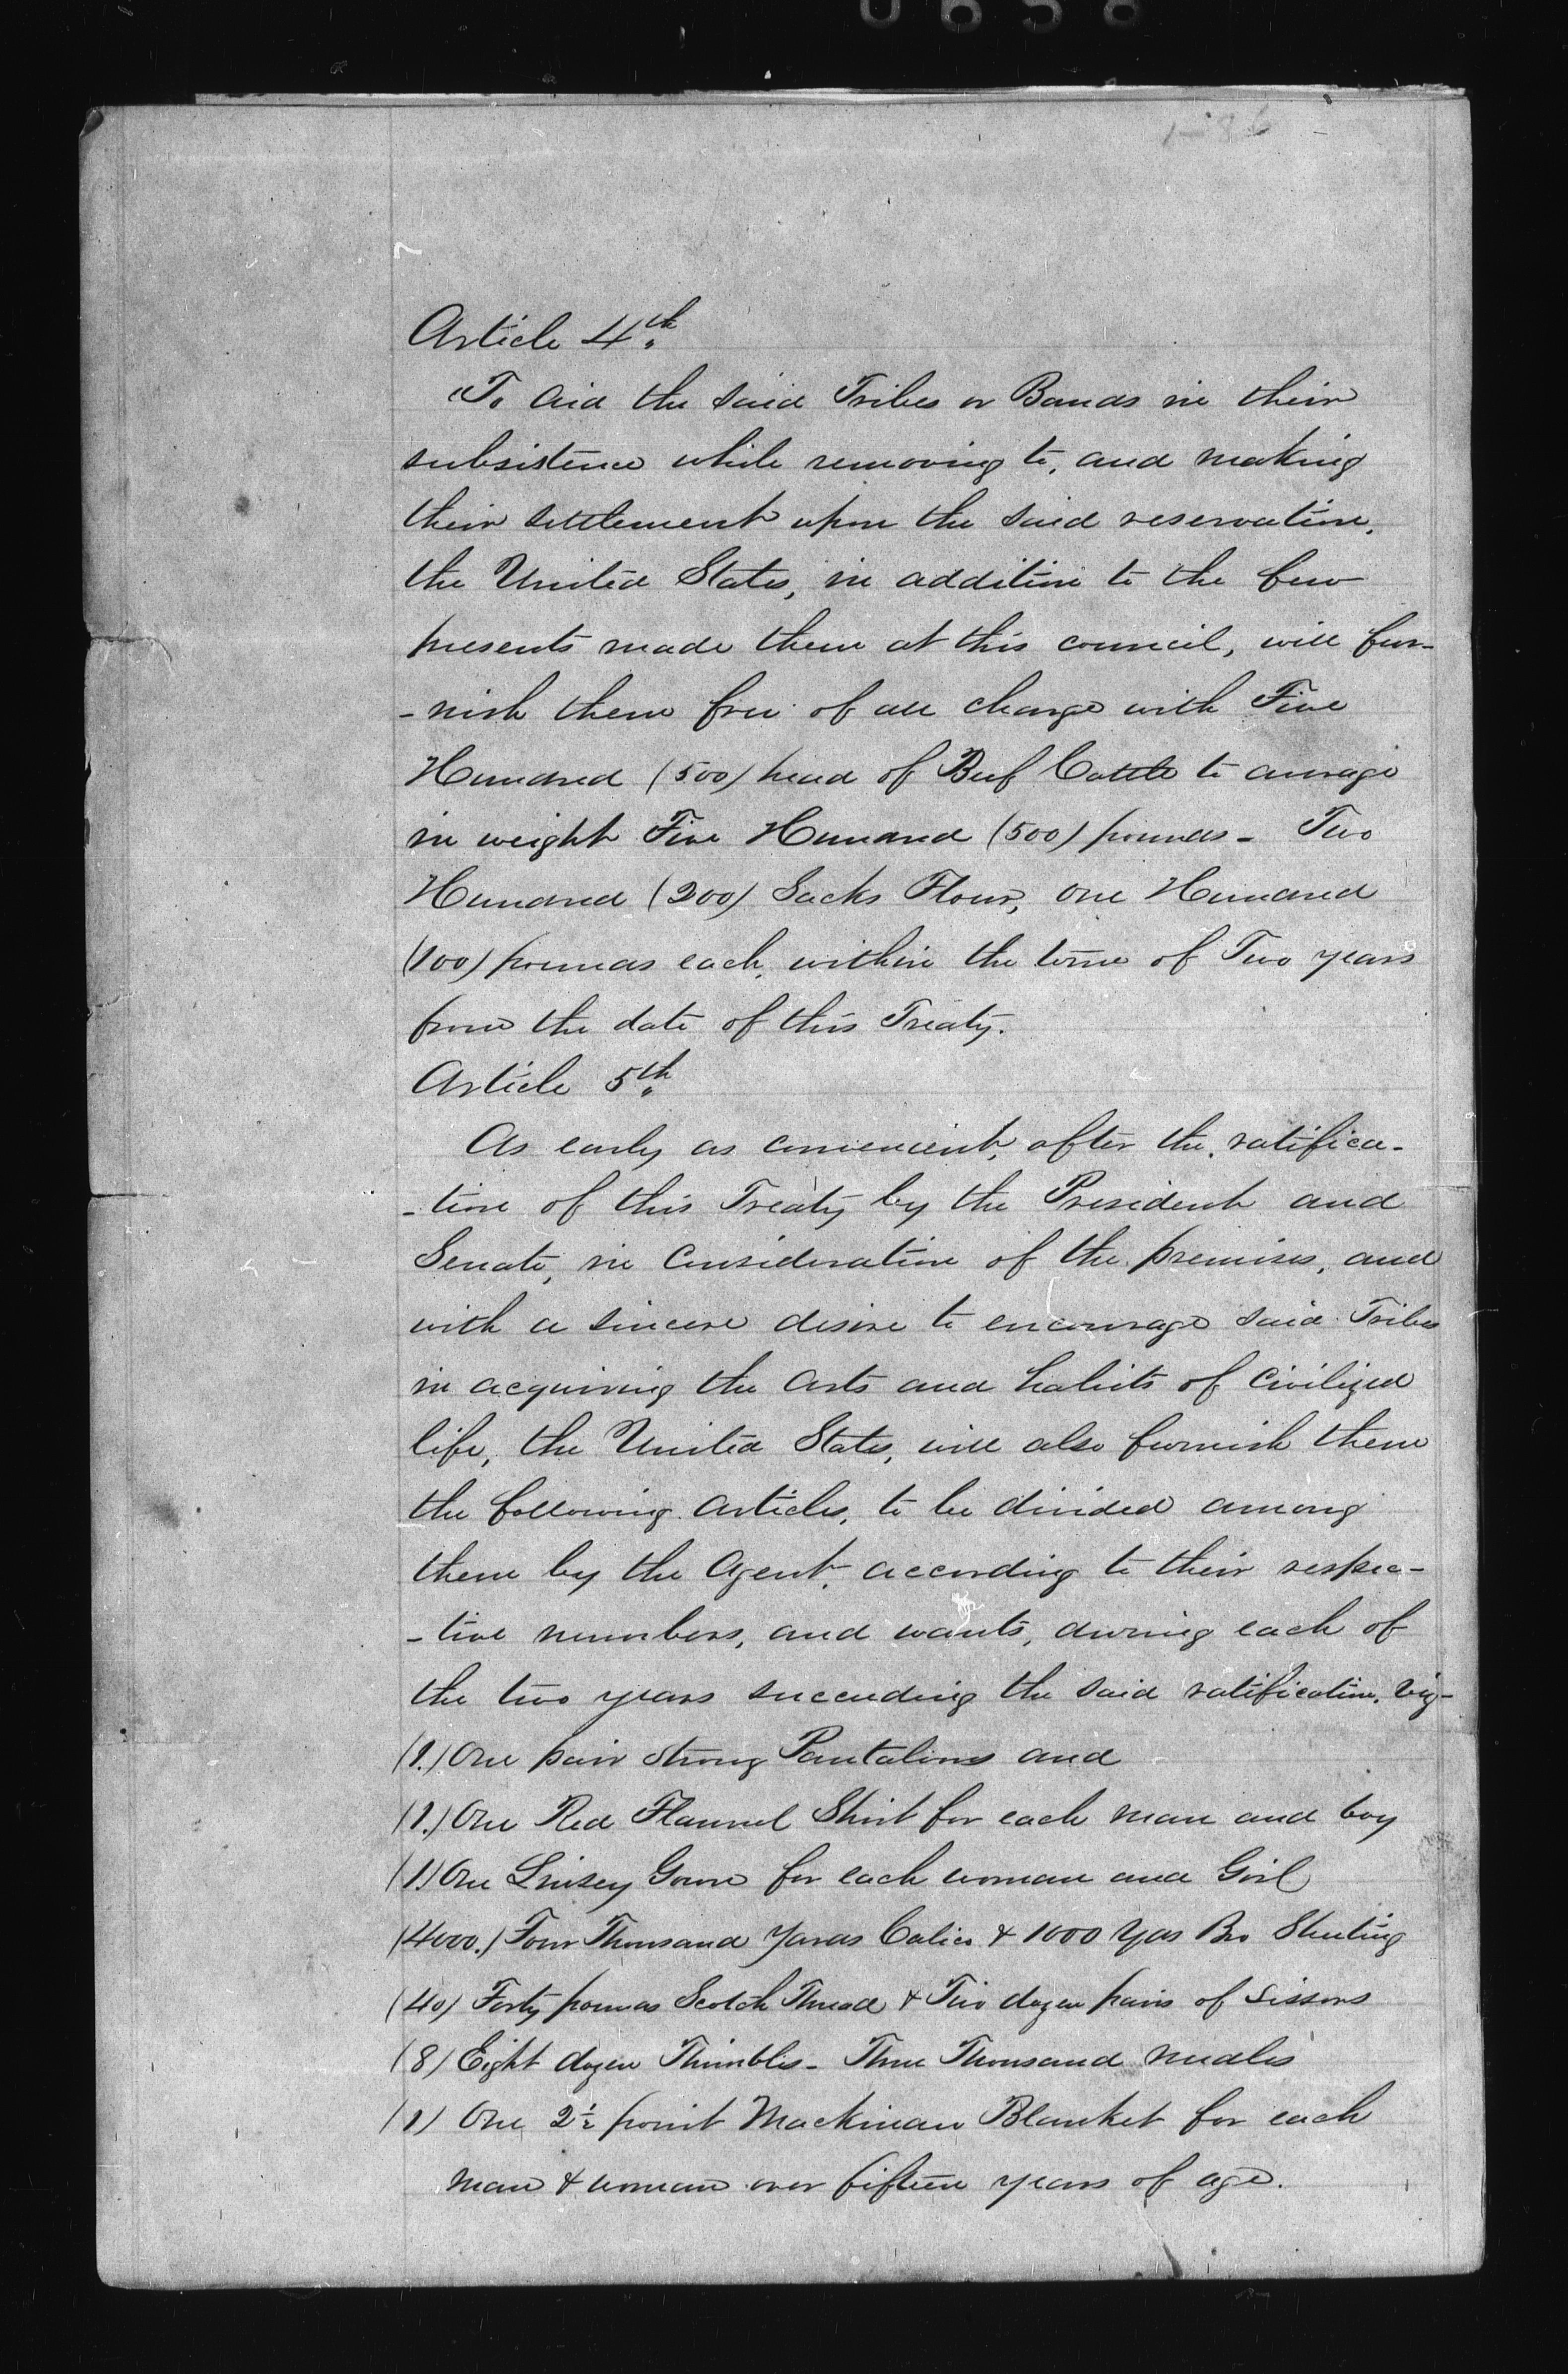 Article 4th
To aid the said Tribes or Bands in their
subsistence while removing to, and making
their settlement upon the said reservation,
the United States, in addition to the few
presents made them at this council, will fur-
-nish them free of all charge with Five
Hundred (500) head of Beef Cattle to average
in weight Five Hundred (500) pounds - Two
Hundred (200) Sacks Flour, one Hundred
(100) pounds each, within the term of Two years
from the date of this Treaty.
Article 5th
As early as convenient, after the ratifica-
-tion of this Treaty by the President and
Senate, in consideration of the premises, and
with a sincere desire to encourage said Tribes
in acquiring the arts and habits of civilized
life, the United States, will also furnish them
the following articles, to be divided among
them by the Agent, according to their respec-
-tive numbers, and wants, during each of
the two years succeeding the said ratification, viz-
(1.) One pair strong Pantaloons and
(1.) One Red Flannel Shirt for each man and boy
(1) One Linsey Gown for each woman and Girl
(4000.) Four Thousand Yards Calico & 1000 Yds Bro Sheeting
(40) Forty pounds Scotch Thread & Two dozen pairs of Sissors
(8) Eight dozen Thimbles - Three Thousand needles
(1) One 2½ point Mackinaw Blanket for each
man & woman over fifteen years of age.